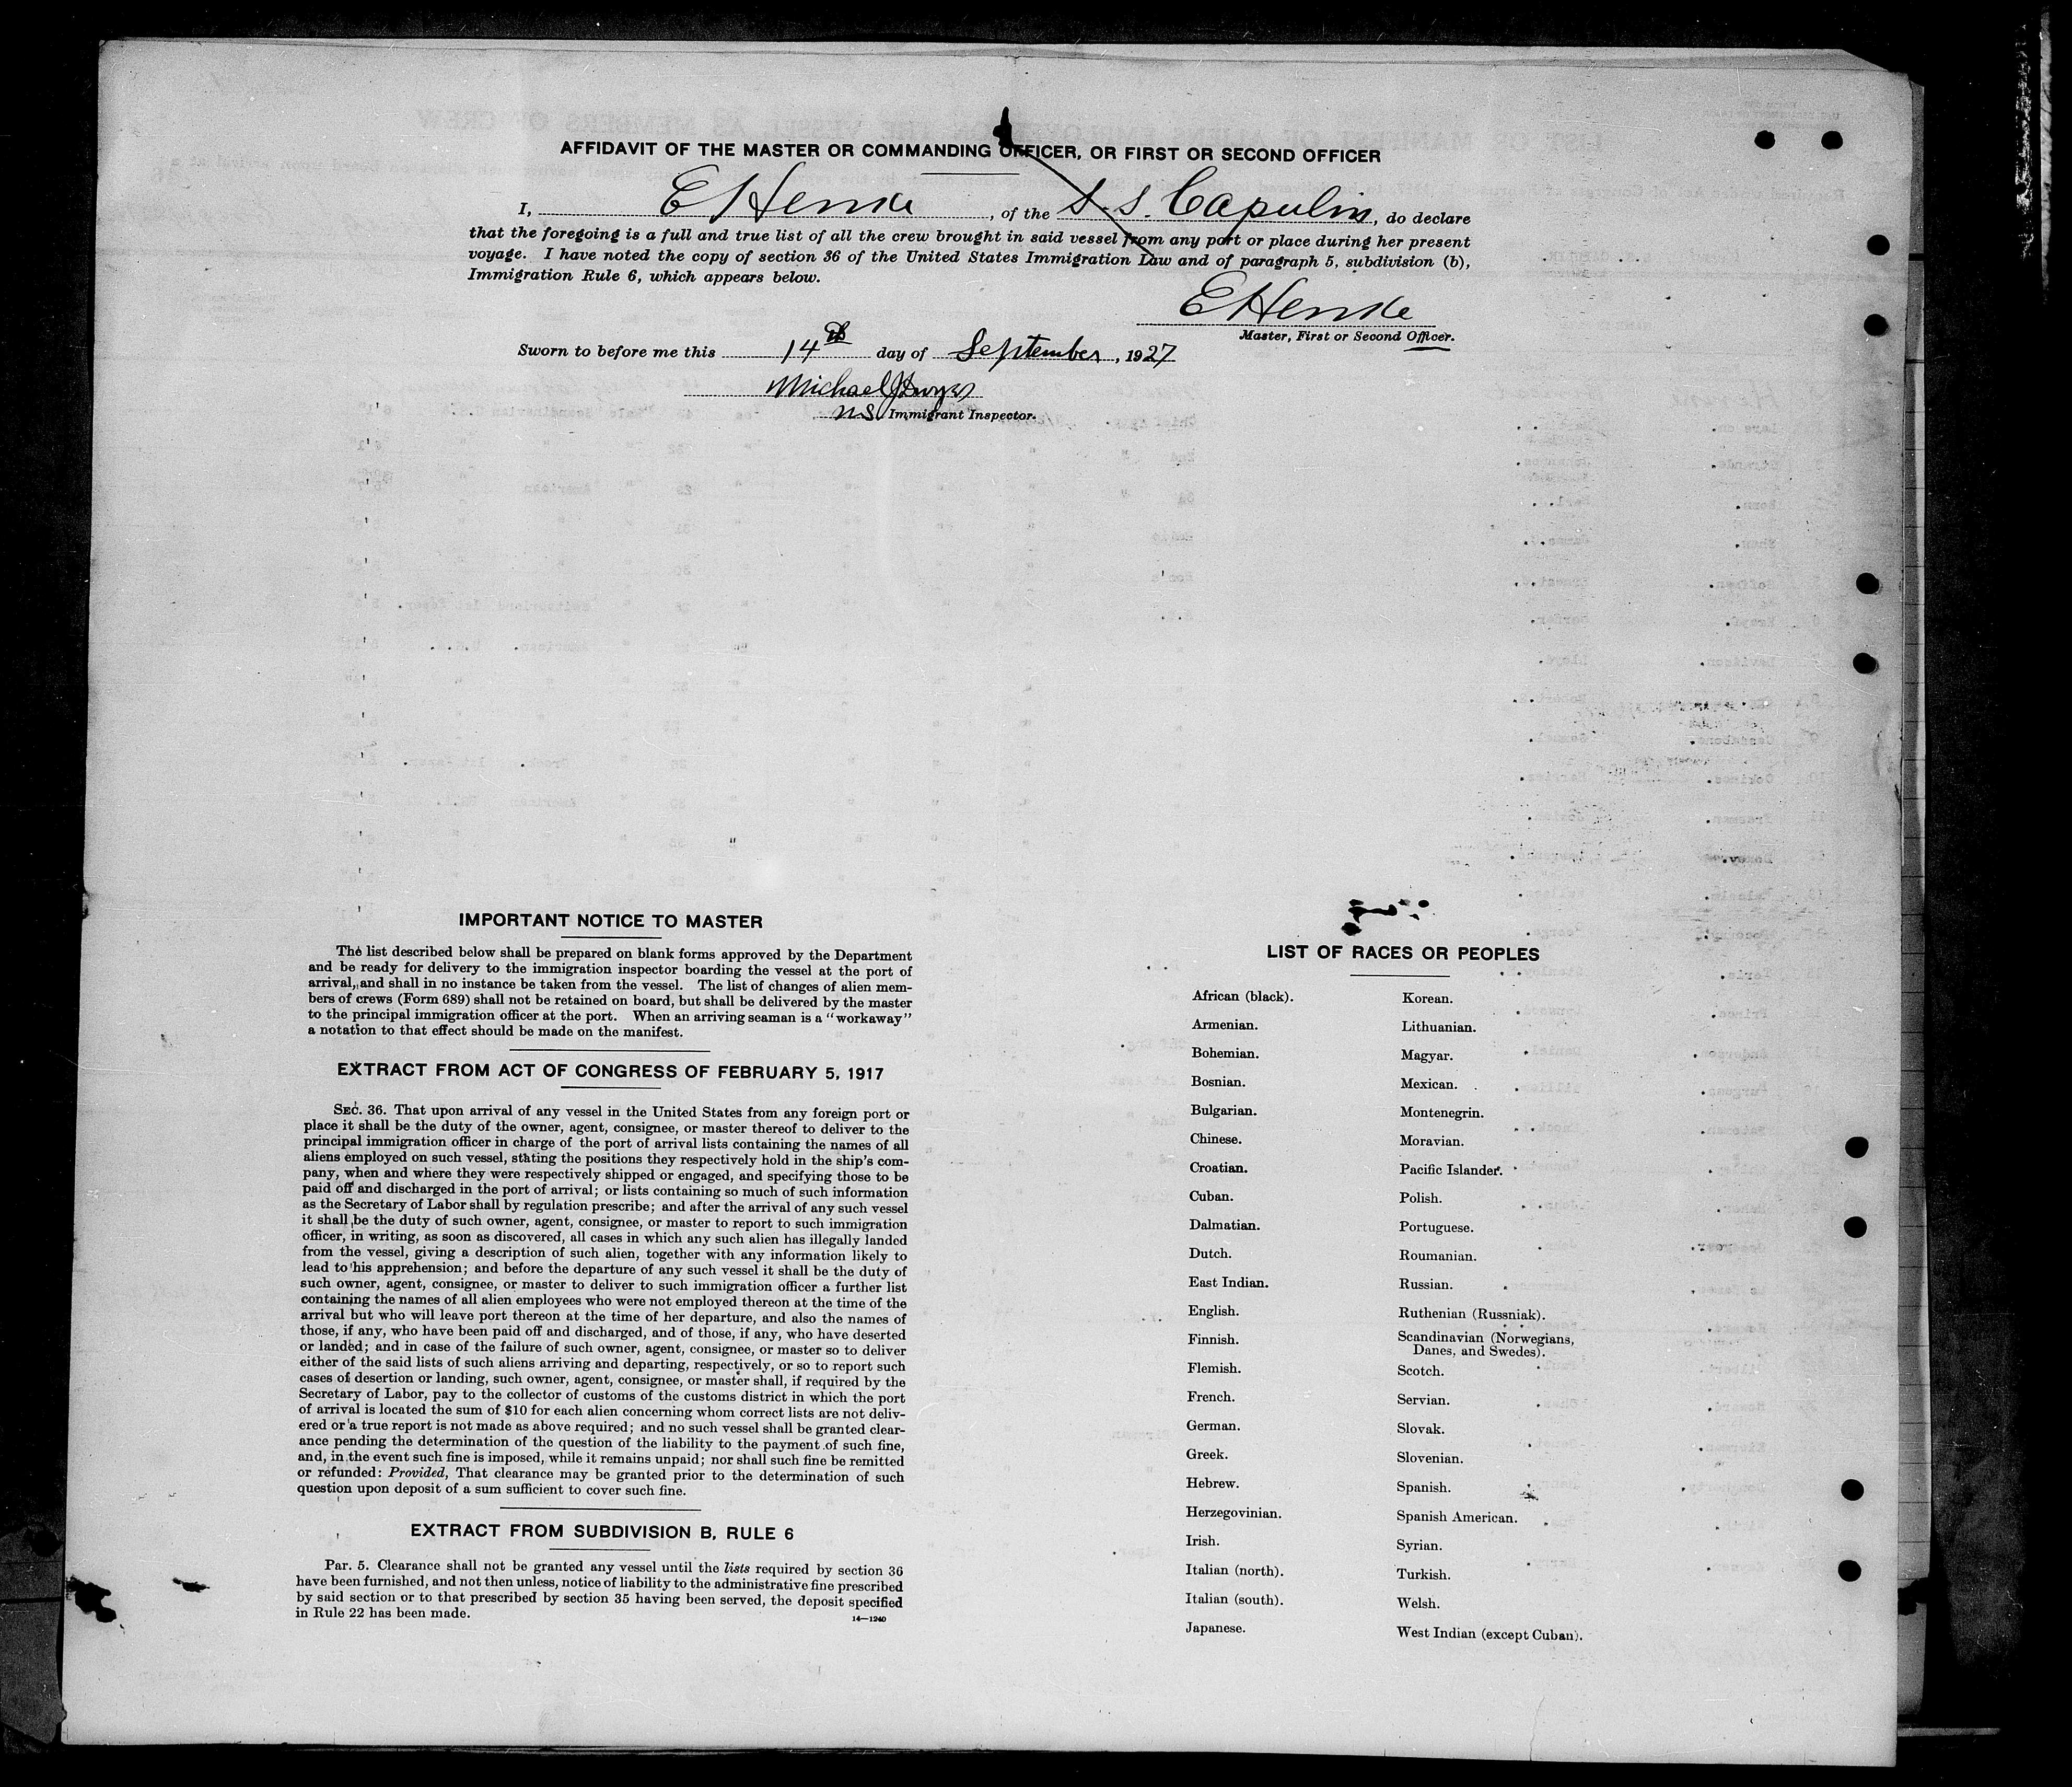 AFFIDAVIT OF THE MASTER OR COMMANDING OFFICER, OR FIRST OR SECOND OFFICER
I, E Henke, of the S.S. Capulin, do declare
that the foregoing is a full and true list of all the crew brought in said vessel from any port or place during her present
voyage. I have noted the copy of section 36 of the United States Immigration Law and of paragraph 5, subdivision (b),
Immigration Rule 6, which appears below.
E Henke
Master, First or Second Officer.
Sworn to before me this 14th day of September, 1927
Michael J Dwyer
Immigrant Inspector.
IMPORTANT NOTICE TO MASTER
The list described below shall be prepared on blank forms approved by the Department
and be ready for delivery to the immigration inspector boarding the vessel at the port of
arrival, and shall in no instance be taken from the vessel. The list of changes of alien mem-
bers of crews (Form 689) shall not be retained on board, but shall be delivered by the master
to the principal immigration officer at the port. When an arriving seaman is a "workaway"
a notation to that effect should be made on the manifest.
EXTRACT FROM ACT OF CONGRESS OF FEBRUARY 5, 1917
SEC. 36. That upon arrival of any vessel in the United States from any foreign port or
place it shall be the duty of the owner, agent, consignee, or master thereof to deliver to the
principal immigration officer in charge of the port of arrival lists containing the names of all
aliens employed on such vessel, stating the positions they respectively hold in the ship's com-
pany, when and where they were respectively shipped or engaged, and specifying those to be
paid off and discharged in the port of arrival; or lists containing so much of such information
as the Secretary of Labor shall by regulation prescribe; and after the arrival of any such vessel
it shall be the duty of such owner, agent, consignee, or master to report to such immigration
officer, in writing, as soon as discovered, all cases in which any such alien has illegally landed
from the vessel, giving a description of such alien, together with any information likely to
lead to his apprehension; and before the departure of any such vessel it shall be the duty of
such owner, agent, consignee, or master to deliver to such immigration officer a further list
containing the names of all alien employees who were not employed thereon at the time of the
arrival but who will leave port thereon at the time of her departure, and also the names of
those, if any, who have been paid off and discharged, and of those, if any, who have deserted
or landed; and in case of the failure of such owner, agent, consignee, or master so to deliver
either of the said lists of such aliens arriving and departing, respectively, or so to report such
cases of desertion or landing, such owner, agent, consignee, or master shall, if required by the
Secretary of Labor, pay to the collector of customs of the customs district in which the port
of arrival is located the sum of $10 for each alien concerning whom correct lists are not deliv-
ered or a true report is not made as above required; and no such vessel shall be granted clear-
ance pending the determination of the question of the liability to the payment of such fine,
and, in the event such fine is imposed, while it remains unpaid; nor shall such fine be remitted
or refunded: Provided, That clearance may be granted prior to the determination of such
question upon deposit of a sum sufficient to cover such fine.
EXTRACT FROM SUBDIVISION B, RULE 6
Par. 5. Clearance shall not be granted any vessel until the lists required by section 36
have been furnished, and not then unless, notice of liability to the administrative fine prescribed
by said section or to that prescribed by section 35 having been served, the deposit specified
in Rule 22 has been made.
14—1240
LIST OF RACES OR PEOPLES
African (black).
Armenian.
Bohemian.
Bosnian.
Bulgarian.
Chinese.
Croatian.
Cuban.
Dalmatian.
Dutch.
East Indian.
English.
Finnish.
Flemish.
French.
German.
Greek.
Hebrew.
Herzegovinian.
Irish.
Italian (north).
Italian (south).
Japanese.
Korean.
Lithuanian.
Magyar.
Mexican.
Montenegrin.
Moravian.
Pacific Islander.
Polish.
Portuguese.
Roumanian.
Russian.
Ruthenian (Russniak).
Scandinavian (Norwegians,
Danes, and Swedes).
Scotch.
Servian.
Slovak.
Slovenian.
Spanish.
Spanish American.
Syrian.
Turkish.
Welsh.
West Indian (except Cuban).